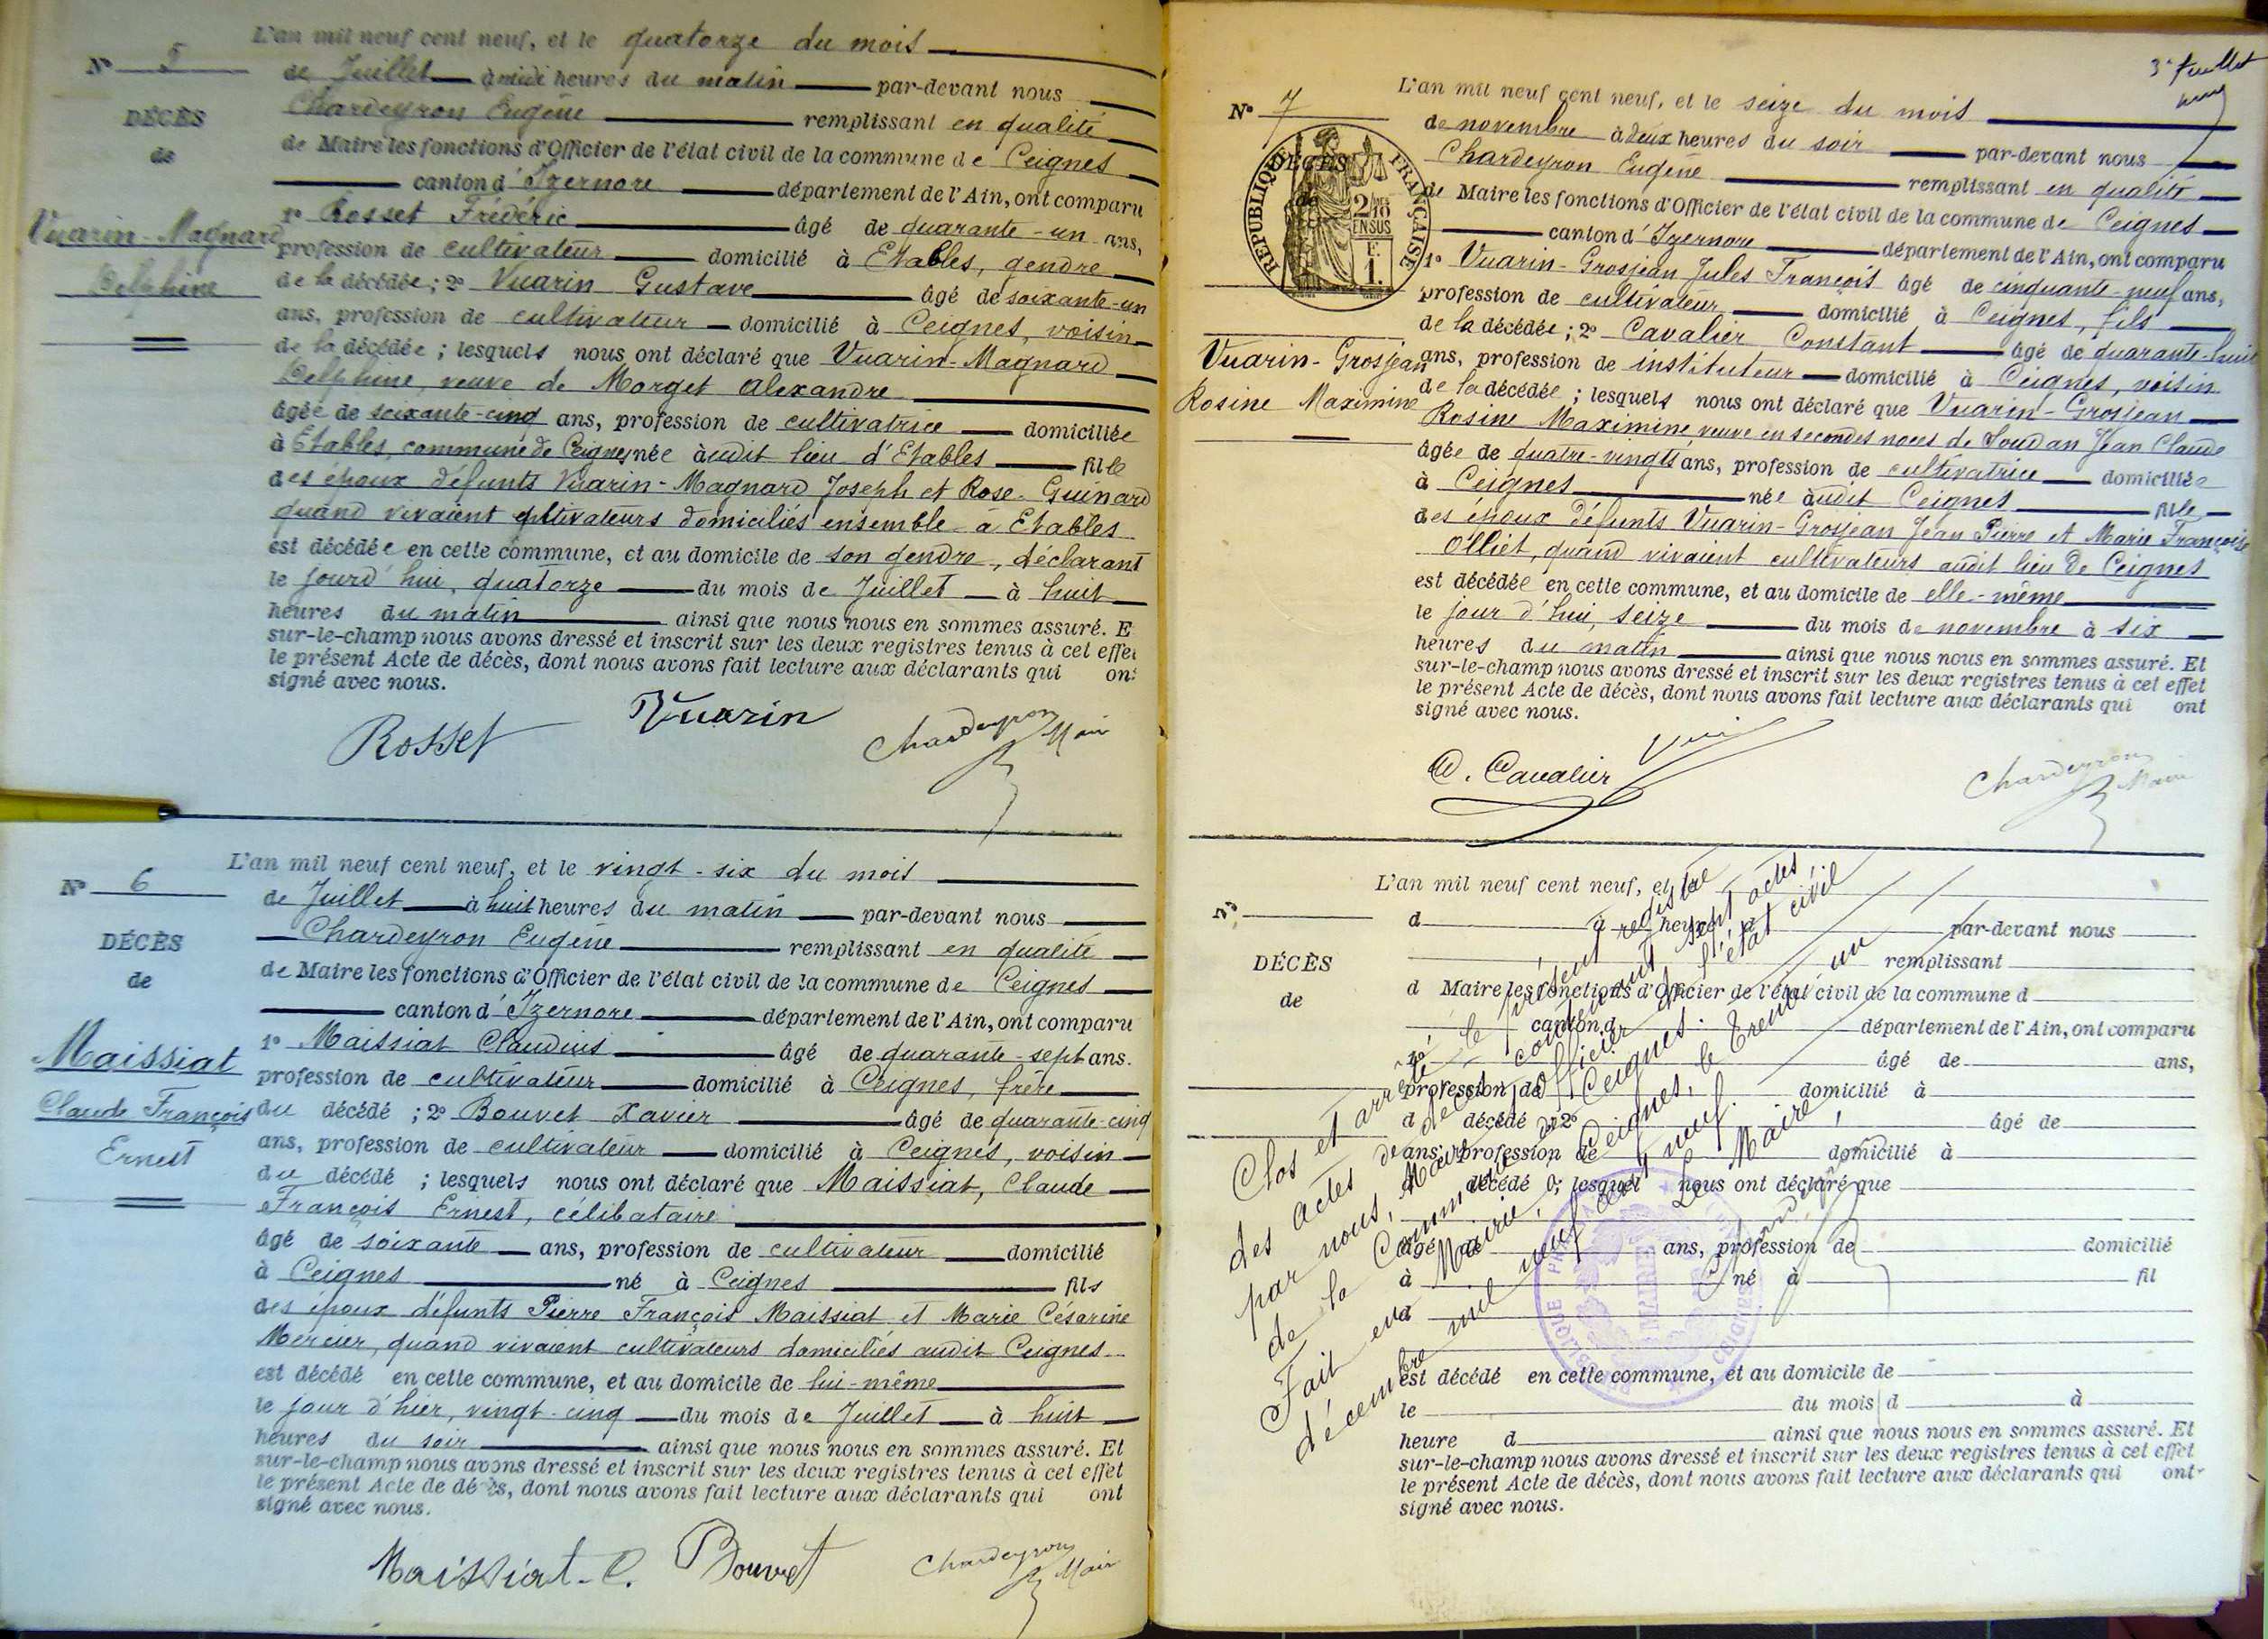 L'an mil neuf cent neuf, et le quatorze du mois
N° 5
de Juillet à midi heures du matin par-devant nous
Chardeyron Eugène remplissant en qualité
DÉCÈS
de
de Maire les fonctions d'Officier de l'état civil de la commune de Ceignes
canton d'Izernore département de l'Ain, ont comparu
1° Rosset Frédéric âgé de quarante-un ans,
Vuarin-Magnard
Delphine
profession de cultivateur domicilié à Etables, gendre
de la décédée ; 2° Vuarin Gustave âgé de soixante-un
ans, profession de cultivateur domicilié à Ceignes, voisin
de la décédée ; lesquels nous ont déclaré que Vuarin-Magnard
Delphine, veuve de Morget Alexandre
âgée de soixante-cinq ans, profession de cultivatrice domiciliée
à Etables, commune de Ceignes née àudit lieu d'Etables fille
des époux défunts Vuarin-Magnard Joseph et Rose Guinard
quand vivaient cultivateurs domiciliés ensemble à Etables
est décédée en cette commune, et au domicile de son gendre, déclarant
le jourd'hui, quatorze du mois de Juillet à huit
heures du matin ainsi que nous nous en sommes assuré. E
sur-le-champ nous avons dressé et inscrit sur les deux registres tenus à cet effet
le présent Acte de décès, dont nous avons fait lecture aux déclarants qui ont
signé avec nous.
Rosset Vuarin Chardeyron Maire
L'an mil neuf cent neuf, et le vingt-six du mois
N° 6
de Juillet à huit heures du matin par-devant nous
Chardeyron Eugène remplissant en qualité
DÉCÈS
de
de Maire les fonctions d'Officier de l'état civil de la commune de Ceignes
canton d'Izernore département de l'Ain, ont comparu
1° Maissiat Claudius âgé de quarante-sept ans.
Maissiat
Claude François
Ernest
profession de cultivateur domicilié à Ceignes, frère
du décédé ; 2° Bouvet Xavier âgé de quarante-cinq
ans, profession de cultivateur domicilié à Ceignes, voisin
du décédé ; lesquels nous ont déclaré que Maissiat, Claude
François Ernest, célibataire
âgé de soixante ans, profession de cultivateur domicilié
à Ceignes né à Ceignes fils
des époux défunts Pierre François Maissiat et Marie Césarine
Mercier, quand vivaient cultivateurs domiciliés audit Ceignes
est décédé en cette commune, et au domicile de lui-même
le jour d'hier, vingt-cinq du mois de Juillet à huit
heures du soir ainsi que nous nous en sommes assuré. Et
sur-le-champ nous avons dressé et inscrit sur les deux registres tenus à cet effet
le présent Acte de décès, dont nous avons fait lecture aux déclarants qui ont
signé avec nous.
Maissiat. C. Bouvet Chardeyron Maire
3e feuillet
L'an mil neuf cent neuf, et le seize du mois
N° 7
de novembre à deux heures du soir par-devant nous
Chardeyron Eugène remplissant en qualité
DÉCÈS
de
RÉPUBLIQUE FRANÇAISE
2/10 EN SUS
F. 1.
de Maire les fonctions d'Officier de l'état civil de la commune de Ceignes
canton d'Izernore département de l'Ain, ont comparu
1° Vuarin-Grosjean Jules François âgé de cinquante-neuf ans,
profession de cultivateur domicilié à Ceignes, fils
de la décédée ; 2° Cavalier Constant âgé de quarante-huit
Vuarin-Grosjean
Rosine Maximine
ans, profession de instituteur domicilié à Ceignes, voisin
de la décédée ; lesquels nous ont déclaré que Vuarin-Grosjean
Rosine Maximine veuve en secondes noces de Lourdan Jean Claude
âgée de quatre-vingts ans, profession de cultivatrice domiciliée
à Ceignes née àudit Ceignes fille
des époux défunts Vuarin-Grosjean Jean Pierre et Marie Françoise
Olliet, quand vivaient cultivateurs audit lieu de Ceignes
est décédée en cette commune, et au domicile de elle-même
le jour d'hui, seize du mois de novembre à six
heures du matin ainsi que nous nous en sommes assuré. Et
sur-le-champ nous avons dressé et inscrit sur les deux registres tenus à cet effet
le présent Acte de décès, dont nous avons fait lecture aux déclarants qui ont
signé avec nous.
C. Cavalier Chardeyron Maire
L'an mil neuf cent neuf, et le
N°
d à heures d par-devant nous
remplissant
DÉCÈS
de
d Maire les fonctions d'Officier de l'état civil de la commune d
canton d département de l'Ain, ont comparu
1° âgé de ans,
profession de domicilié à
d décédé ; 2° âgé de
ans, profession de domicilié à
d décédé ; lesquels nous ont déclaré que
âgé de ans, profession de domicilié
à né à fil
d
est décédé en cette commune, et au domicile de
le du mois d à
heure d ainsi que nous nous en sommes assuré. Et
sur-le-champ nous avons dressé et inscrit sur les deux registres tenus à cet effet
le présent Acte de décès, dont nous avons fait lecture aux déclarants qui ont
signé avec nous.
Clos et arrêté le présent registre
des actes de décès contenant sept actes
par nous, Maire et officier de l'état civil
de la Commune de Ceignes.
Fait en Mairie, à Ceignes, le trente un
décembre mil neuf cent neuf.
Le Maire,
Chardeyron
RÉPUBLIQUE MAIRIE CEIGNES